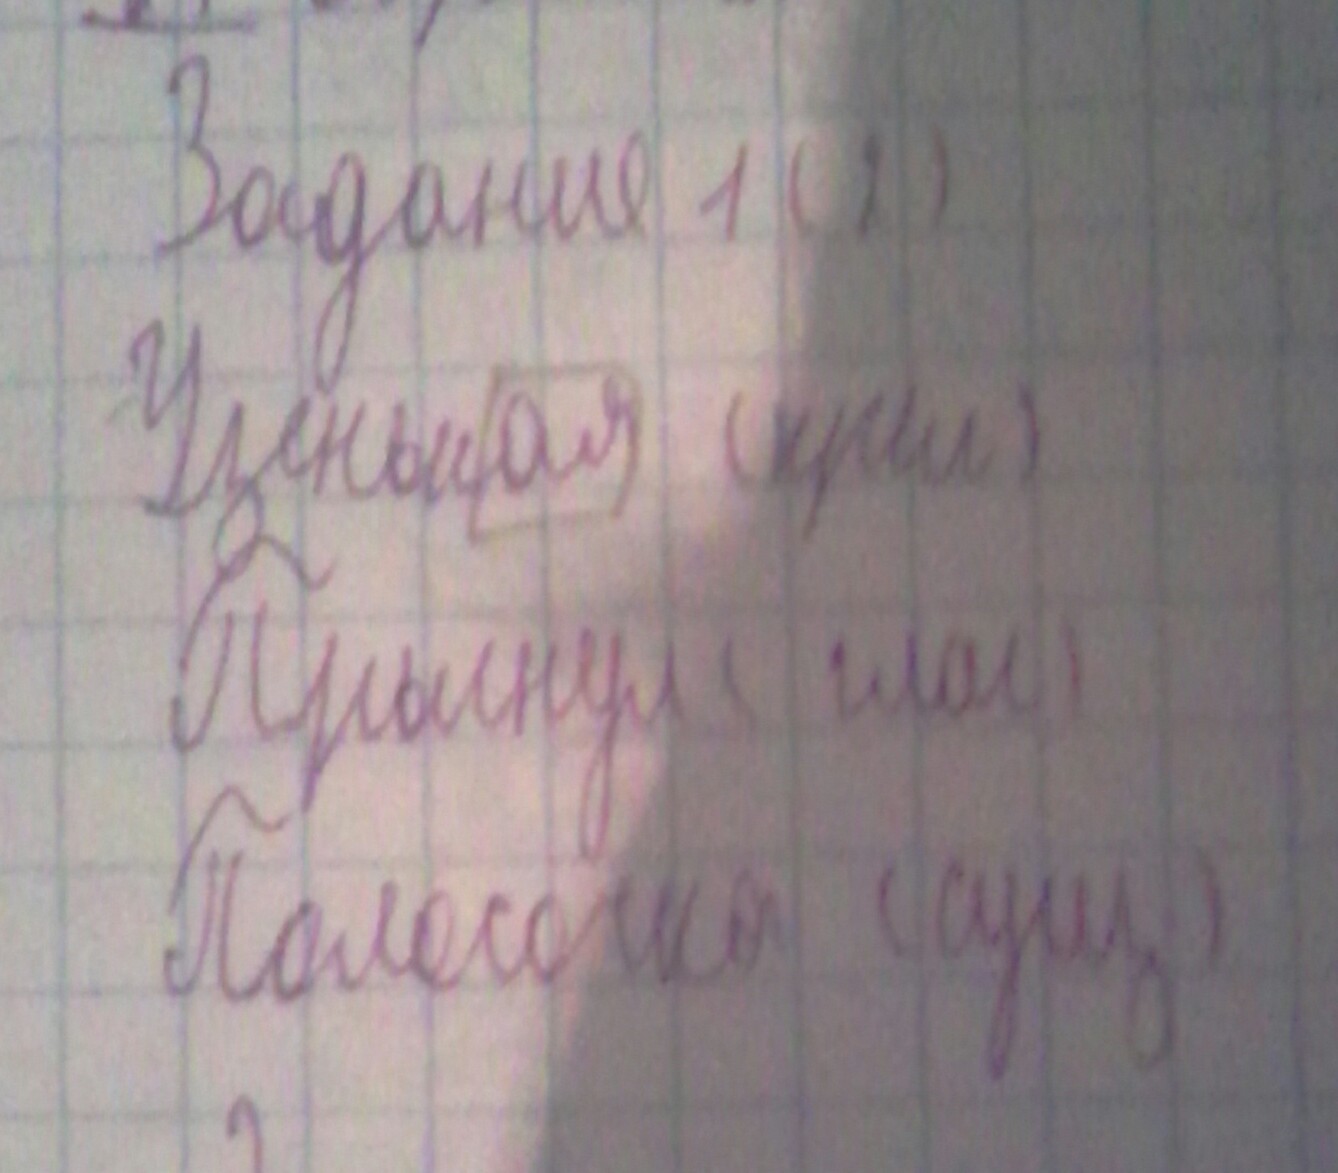 Задание 1(1)
Узенькая (прил)
Прыгнул (глаг)
Полосочка (сущ)